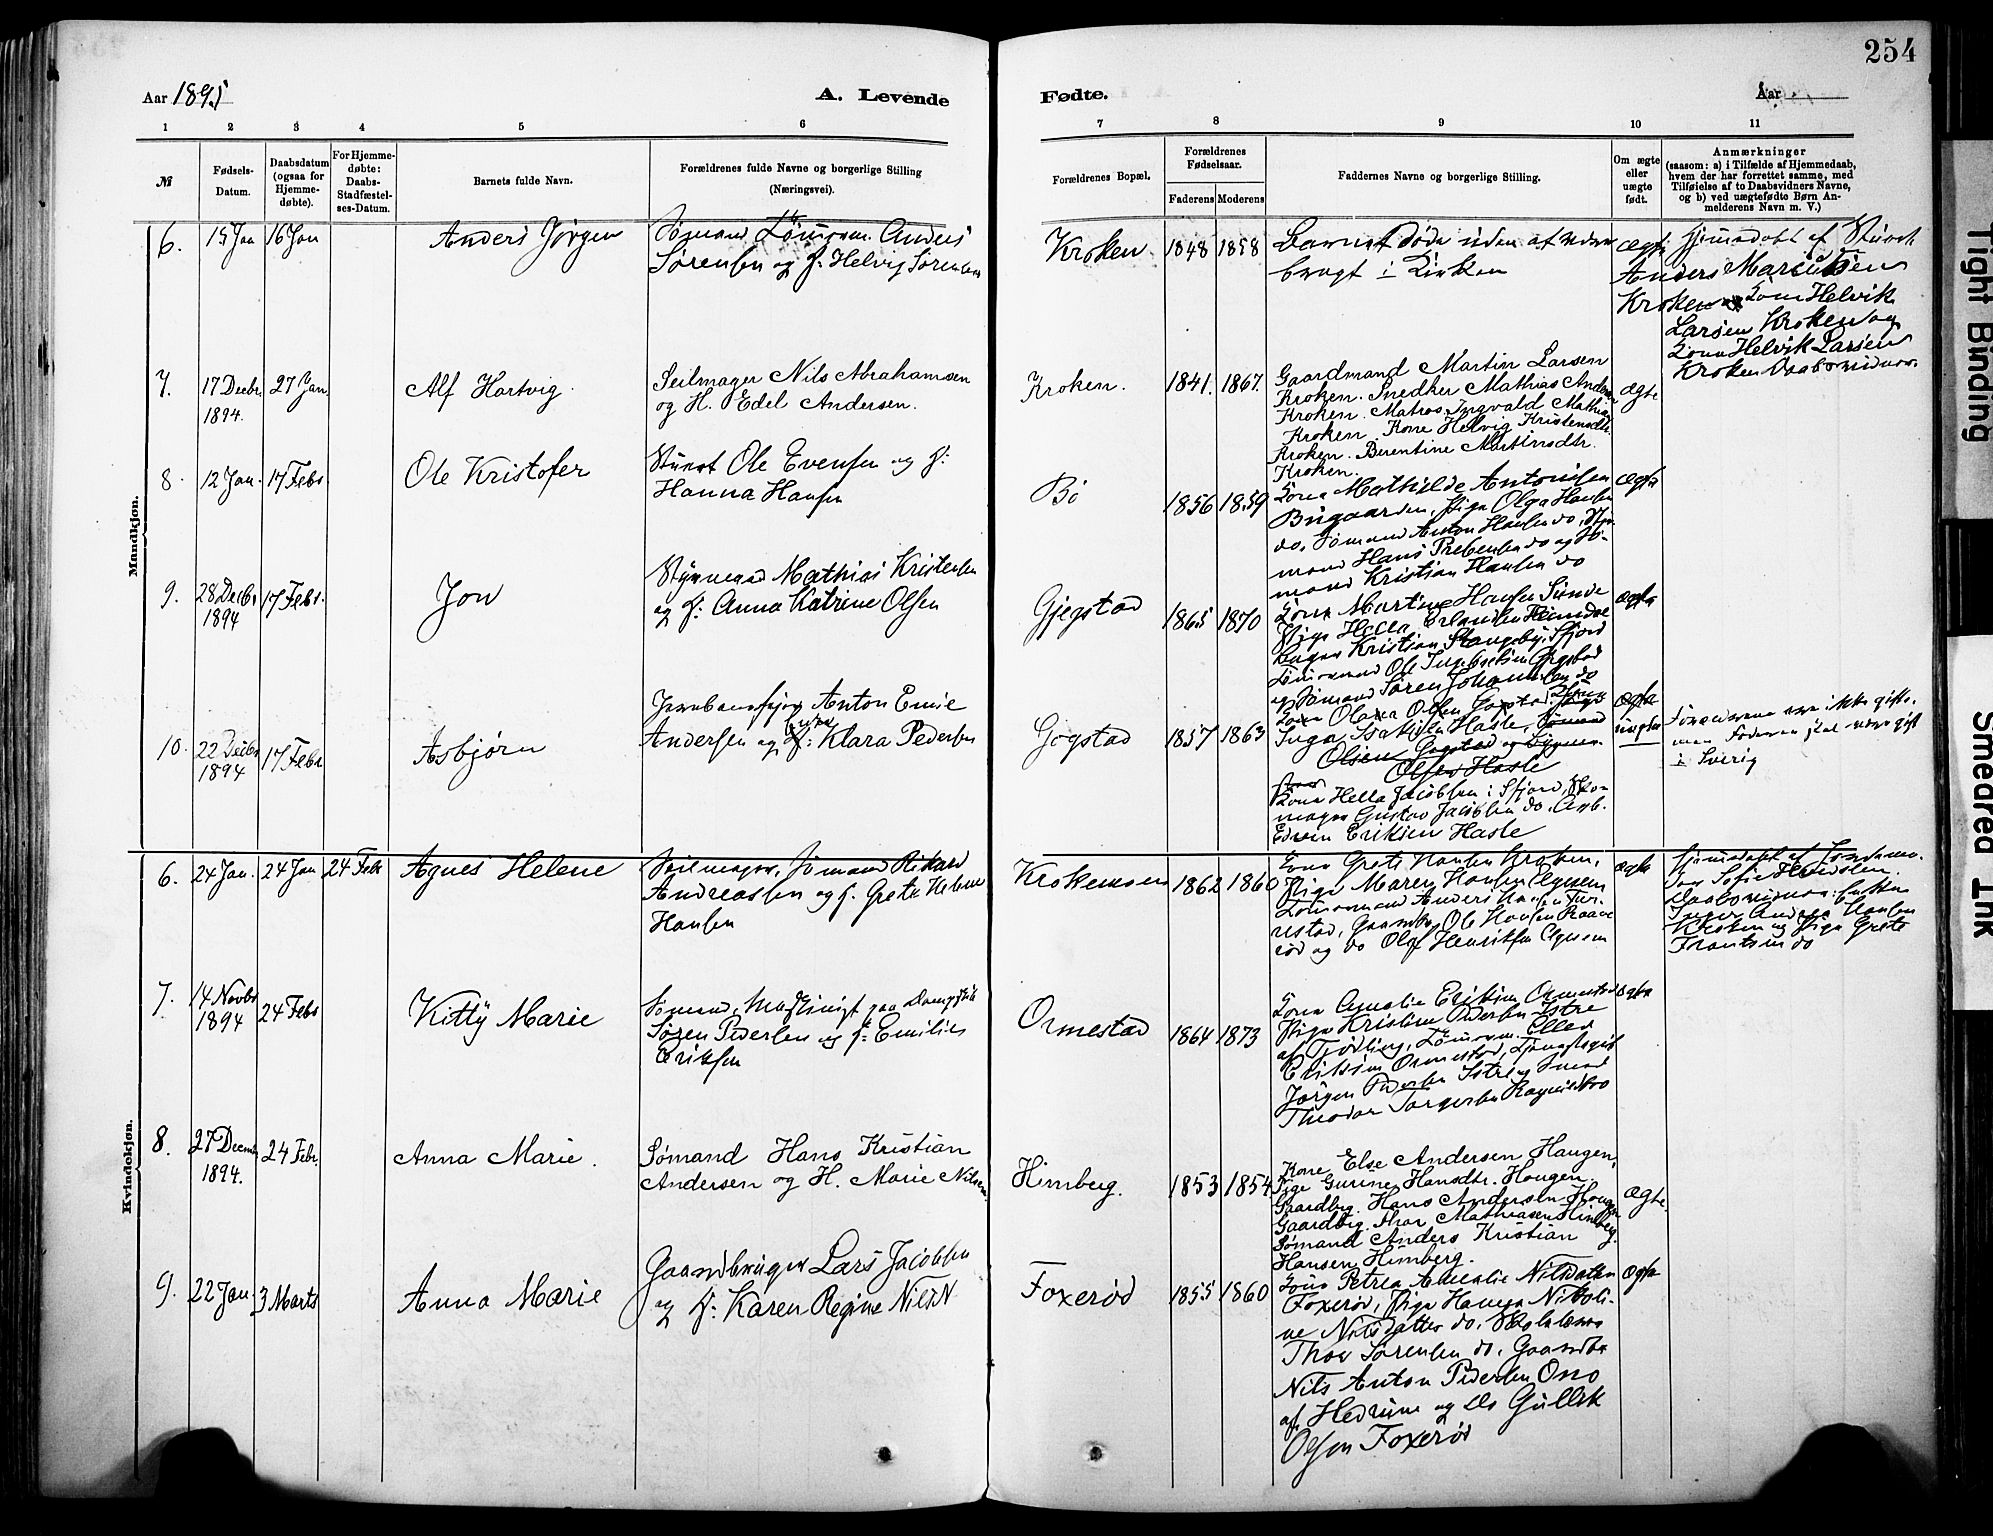 254
Aar 1895
A. Levende
Fødte.
Aar
1 2 3 4 5 6 7 8 9 10 11
№
Fødsels-Datum.
Daabsdatum (ogsaa for Hjemme-døbte).
For Hjemme-døbte: Daabs-Stadfæstel-ses-Datum.
Barnets fulde Navn.
Forældrenes fulde Navne og borgerlige Stilling
(Næringsvei).
Forældrenes Bopæl.
Forældrenes Fødselsaar.
Faderens Moderens
Faddernes Navne og borgerlige Stilling.
Om ægte eller uægte født.
Anmærkninger
(saasom: a) i Tilfælde af Hjemmedaab,
hvem der har forrettet samme, med
Tilføielse af to Daabsvidners Navne,
og b) ved uægtefødte Børn An-
melderens Navn m. V.)
Mandkjøn.
6. 15 Jan 16 Jan Anders Jørgen
Sømand Tømmerm. Anders
Sørensen og H. Helvig Sørensen
Kroken 1848 1858
Barnet døde uden at være
bragt i Kirken
ægte
Hjemmedøbt af
Anders
Kroken og Kone Helvik
Larsen Kroken og
Kone Helvik Larsen
Kroken Daabsvidner.
7. 17 Decbr. 1894. 27 Jan. Alf Hartvig.
Seilmager Nils Abrahamsen
og H. Edel Andersen.
Kroken. 1841. 1867.
Gaardmand Martin Larsen
Kroken. Snedker Mathias Andersen
Kroken. Matros Ingvald Mathias
Kroken. Kone Helvig Kristensdtr.
Kroken. Berentine Martinsdtr.
Kroken.
ægte
8. 12 Jan. 17 Febr Ole Kristofer
Ole Evensen og H:
Hanna Hansen
Bø 1856 1859
Kone Mathilde Antonisen
Bugaarden, Pige Olga Hansen
do, Sømand Anton Hansen do,
mand Hans Prebensen do og Sø-
mand Kristian Hansen do
ægte
9. 28 Decbr 1894 17 Febr. Jon
Styrmand Mathias Kristensen
og H: Anna Katrine Olsen
Gjegstad 1865 1870
Kone Martine Hansen Sunde
Pige Hella
Kristian Stangeby, Sfjord
Tømmermand Ole
og Sømand Søren Johannesen do
ægte
10. 22 Decbr 1894 17 Febr Asbjørn
Anton Emil
Andersen og Klara Pedersen
Gogstad 1857 1863
Kone Olava Olsen Gogstad, Pige
Inga Isaksen Hasle, Sømand
Olsen Gogstad og
Olsen Hasle
Kone Hella Jacobsen i Sfjord, Sko-
mager Gustav Jacobsen do, Arb.
Edvin Eriksen Hasle
ægte
uægte
Forældrene ere ikke gifte,
men Faderen skal være gift
i Sverig
Kvindekjøn.
6. 24 Jan. 24 Jan 24 Febr Agnes Helene
Seilmager, Sømand Rikard
Andreassen og H. Grete Helene
Hansen
Krokemoen 1862 1860
Kone Grete Hansen Kroken,
Pige Maren Hansen
Tømmermand Anders Hansen
Ole Hansen
og do Olaf Henriksen
ægte
Hjemmedøbt af Jordemo.
Daabsvidner: Enken
Inger Andrea Hansen
Kroken og Pige Grete
Frantsen do
7. 14 Novbr 1894 24 Febr Kitty Marie
Sømand, Maskinist paa Dampskib
Søren Pedersen og H: Emilie
Eriksen
Ormestad 1864 1873
Kone Amalie Eriksen Ormestad
Pige Kristine Pedersen Istre
af Tjødling, Tømmerm. Ellef
Eriksen Ormestad,
Jørgen Pedersen Istre, Smed
Theodor Torgersen
ægte
8. 27 Decem 1894. 24 Febr. Anna Marie.
Sømand Hans Kristian
Andersen og H. Marie Nilsen.
Himberg. 1853 1854
Kone Else Andersen Haugen,
Pige Gurine Hansdtr. Haugen.
Gaardbrg. Hans Andersen Haugen
Gaardbrg. Thor Mathiasen Himberg.
Sømand Anders Kristian
Hansen Himberg.
ægte.
9. 22 Jan. 3 Marts Anna Marie
Gaardbruger Lars Jacobsen
og H: Karen Regine Nilsen
Foxerød 1855 1860
Kone Petrea Amalie Nilsdatter
Foxerød, Pige Hanna Nikoli-
ne Nilsdatter do,
Thor Sørensen do, Gaardbr
Nils Anton Pedersen Ono
af Hedrum og do Gullik
Olsen Foxerød
ægte
Tight Binding
Smeared Ink